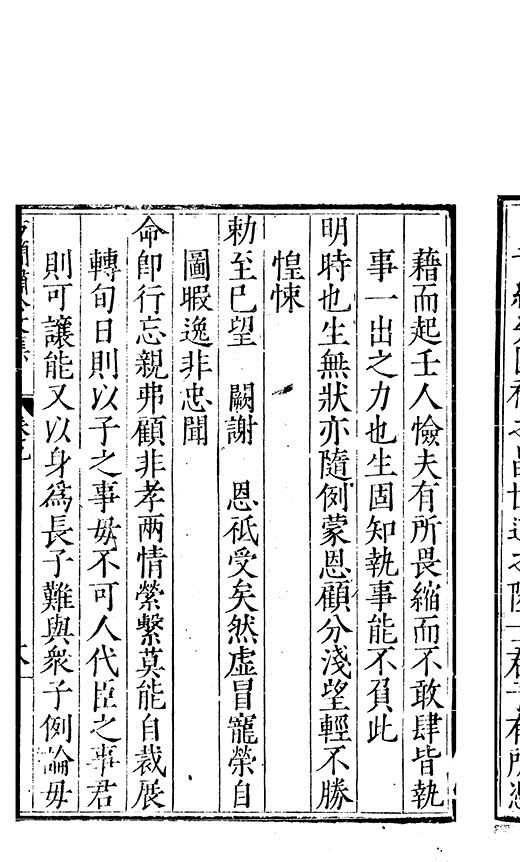 藉而起壬人憸夫有所畏縮而不敢肆皆執
事一出之力也生固知執事能不負此
明時也生無狀亦隨例蒙恩顧分淺望輕不勝
惶悚
勅至已望　闕謝　恩祗受矣然虛冒寵榮自
圖暇逸非忠聞
命卽行忘親弗顧非孝兩情縈繫莫能自裁展
轉旬日則以子之事毋不可人代臣之事君
則可讓能又以身爲長子難與衆子例論毋